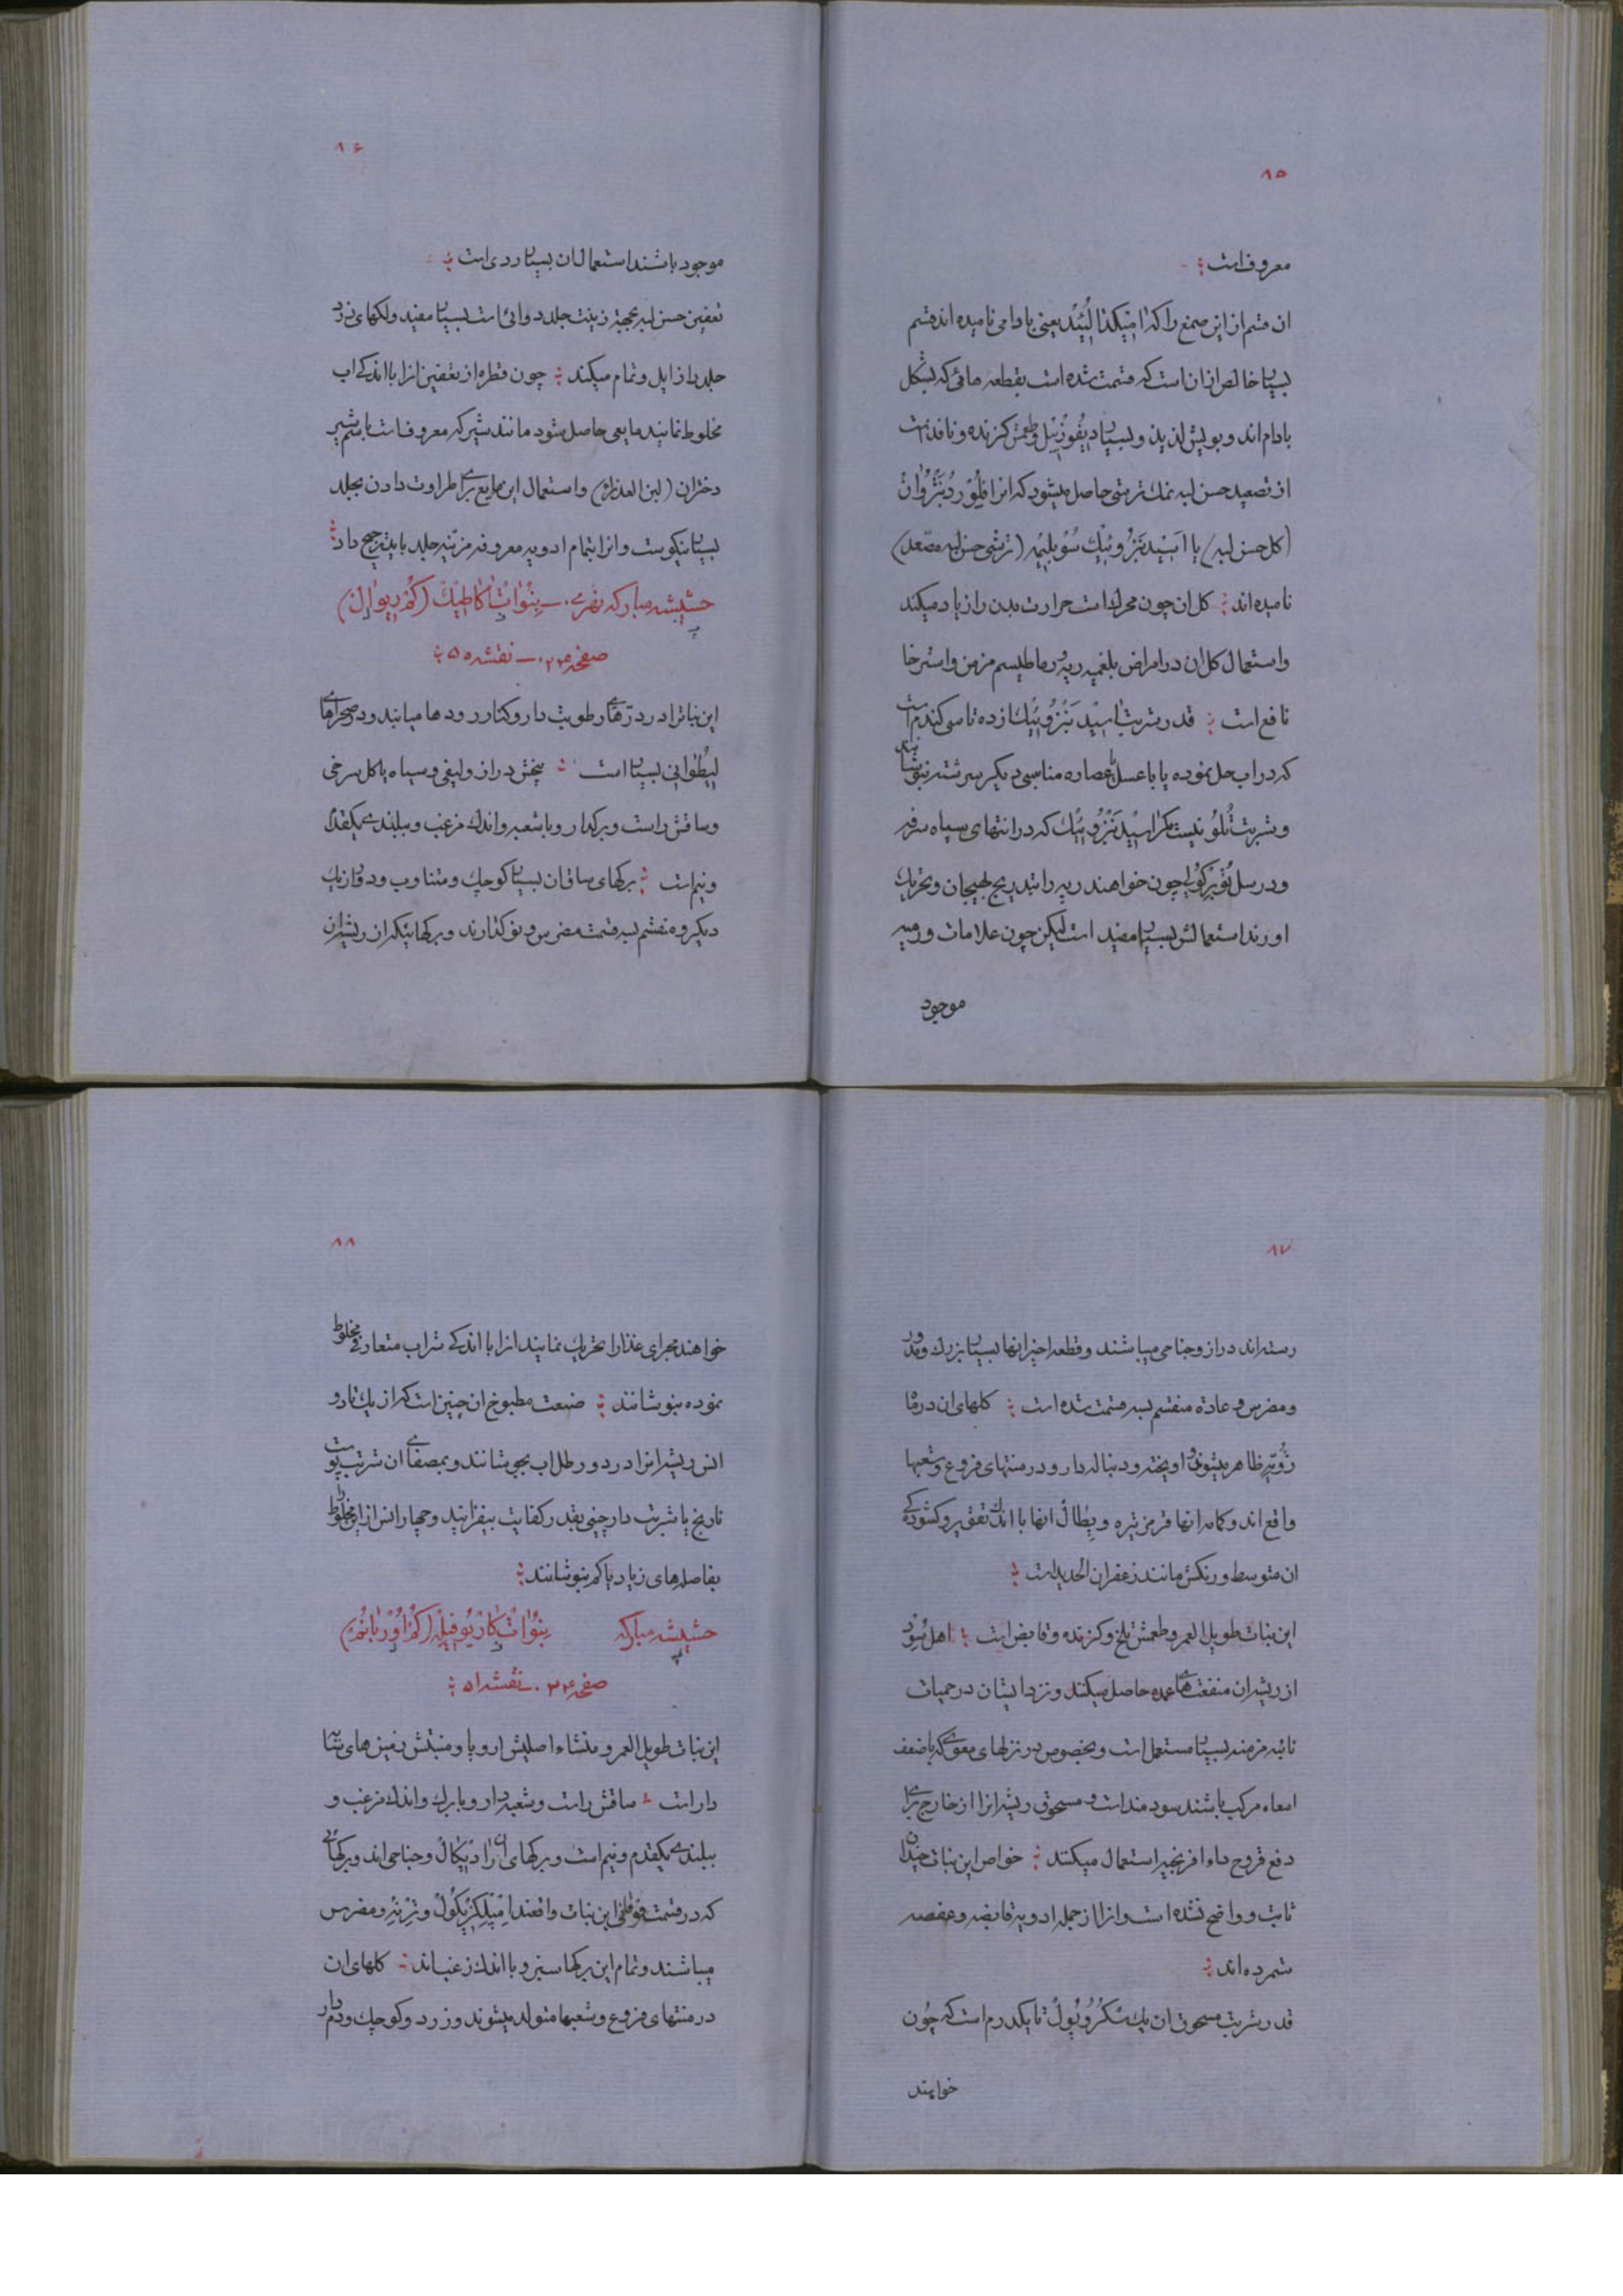 ۸۵
معروفست
ان قسم از این صمغ را که امیکدالئید یعنی بادامی نامیده اند قسم
بسیار خالص ان است که قسمت شده است بقطعه هائی که بشکل
بادام اند و بویش لذیذ و بسیار دیفوزیبل و طعمش کزنده و نافذ است
از تصعید حسن لبه نمک ترشی حاصل میشود که انرا فلور دبنزوان
(کل حسن لبه) یا اسید بنزوئیک سوبلیمه (ترشی حسن لبه مصعد)
نامیده اند کل ان چون محرک است حرارت بدن را زیاد میکند
و استعمال کل ان در امراض بلغمیه ریه و رماطیسم مزمن و استرخا
نافع است قدر شربت اسید بنزوئیک از ده تا سی کندم است
که در اب حل نموده یا با عسل یا عصاره مناسبی دیکر سرشته بنوشانند
و شربت تلو نیست مکر اسید بنزوئیک که در انتهای سیاه سرفه
و در سل توبرکولی چون خواهند ریه را بتدریج بهیجان و تحریک
اورند استعمالش بسیار مفید است لیکن چون علامات ورمیه
موجود
۸۶
موجود باشند استعمال ان بسیار ردی است
تعفین حسن لبه بجهة زینت جلد دوائی است بسیار مفید و لکهای زرد
جلد را زایل و تمام میکند چون قطره از تعفین انرا با اندکی اب
مخلوط نمایند مایعی حاصل شود مانند شیر که معروفست باسم شیر
دختران (لبن العذراء) و استعمال این مایع برای طراوت دادن بجلد
بسیار نیکوست و انرا بتمام ادویه معروفه مزینه جلد باید ترجیح داد
حشیشه مبارکه نهری ـ بنوات اکاطیک (کم ریوال)
صفحه ۲۳۵ ـ نقشه ۵۵
این نبات را در درّهای رطوبت دار و کنار رودها میابند و در صحراهای
لیطوانی بسیار است بیخش دراز و لیفی و سیاه یا کل سرخی
و ساقش راست و برکدار و با شعبه و اندک مزغب و ببلندی یکقدم
و نیم است برکهای ساق ان بسیار کوچک و متناوب و دور از یک
دیکر و منقسم بسه قسمت مضرس و نوکدارند و برکهائیکه از ریشه ان
۸۷
رسته اند دراز و جناحی میباشند و قطعه اخیر انها بسیار بزرک و مدور
و مضرس و عادة منقسم بسه قسمت شده است کلهای ان در ماه
ژوئیه ظاهر میشوند و اویخته و دنباله دار و در منتهای فروع و شعبها
واقع اند و کاسه انها قرمز تیره و پطال انها با اندک تقعیر و کشودکی
ان متوسط و رنکش مانند زعفران الحدید است
این نبات طویل العمر و طعمش تلخ و کزنده و قابض است اهل سود
از ریشه ان منفعت های عمده حاصل میکنند و نزد ایشان در حمیات
نائبه مزمنه بسیار مستعمل است و بخصوص در نزلهای معوی که با ضعف
امعاء مرکب باشند سودمند است و مسحوق ریشه انرا از خارج برای
دفع قروح داء افرنجیه استعمال میکنند خواص این نبات چندان
ثابت و واضح نشده است و انرا از جمله ادویه قابضه و عفصه
شمرده اند
قدر شربت مسحوق ان یک سکروپول تا یکدرم است که چون
خواهند
۸۸
خواهند مجرای غذا را تحریک نمایند انرا با اندکی شراب متعارفی مخلوط
نموده بنوشانند صنعت مطبوخ ان چنین است که از یک تا دو
انس ریشه انرا در دو رطل اب بجوشانند و بمصفای ان شربت پوست
نارنج یا شربت دارچینی بقدر کفایت بیفزایند و چهار انس از این مخلوط را
بفاصلهای زیاد یا کم بنوشانند
حشیشه مبارکه بنوات کاریوفیله (کم اوربانم)
صفحه ۲۳۶ ـ نقشه ۵۱
این نبات طویل العمر و منشاء اصلیش اروپا و منبتش زمین های سایه
دار است ساقش راست و شعبه دار و با برک و اندک مزغب و
ببلندی یکقدم و نیم است و برکهای ان رادیکال و جناحی اند و برکهائی
که در قسمت فوقانی این نبات واقعند امپلکزیکول و ریزتر و مضرس
میباشند و تمام این برکها سبز و با اندک زغب اند کلهای ان
در منتهای فروع و شعبها متولد میشوند و زرد و کوچک و دم دار